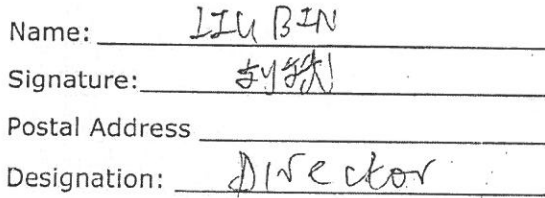 Name: LIU BIN
Signature: 刘
Postal Address
Designation: Director